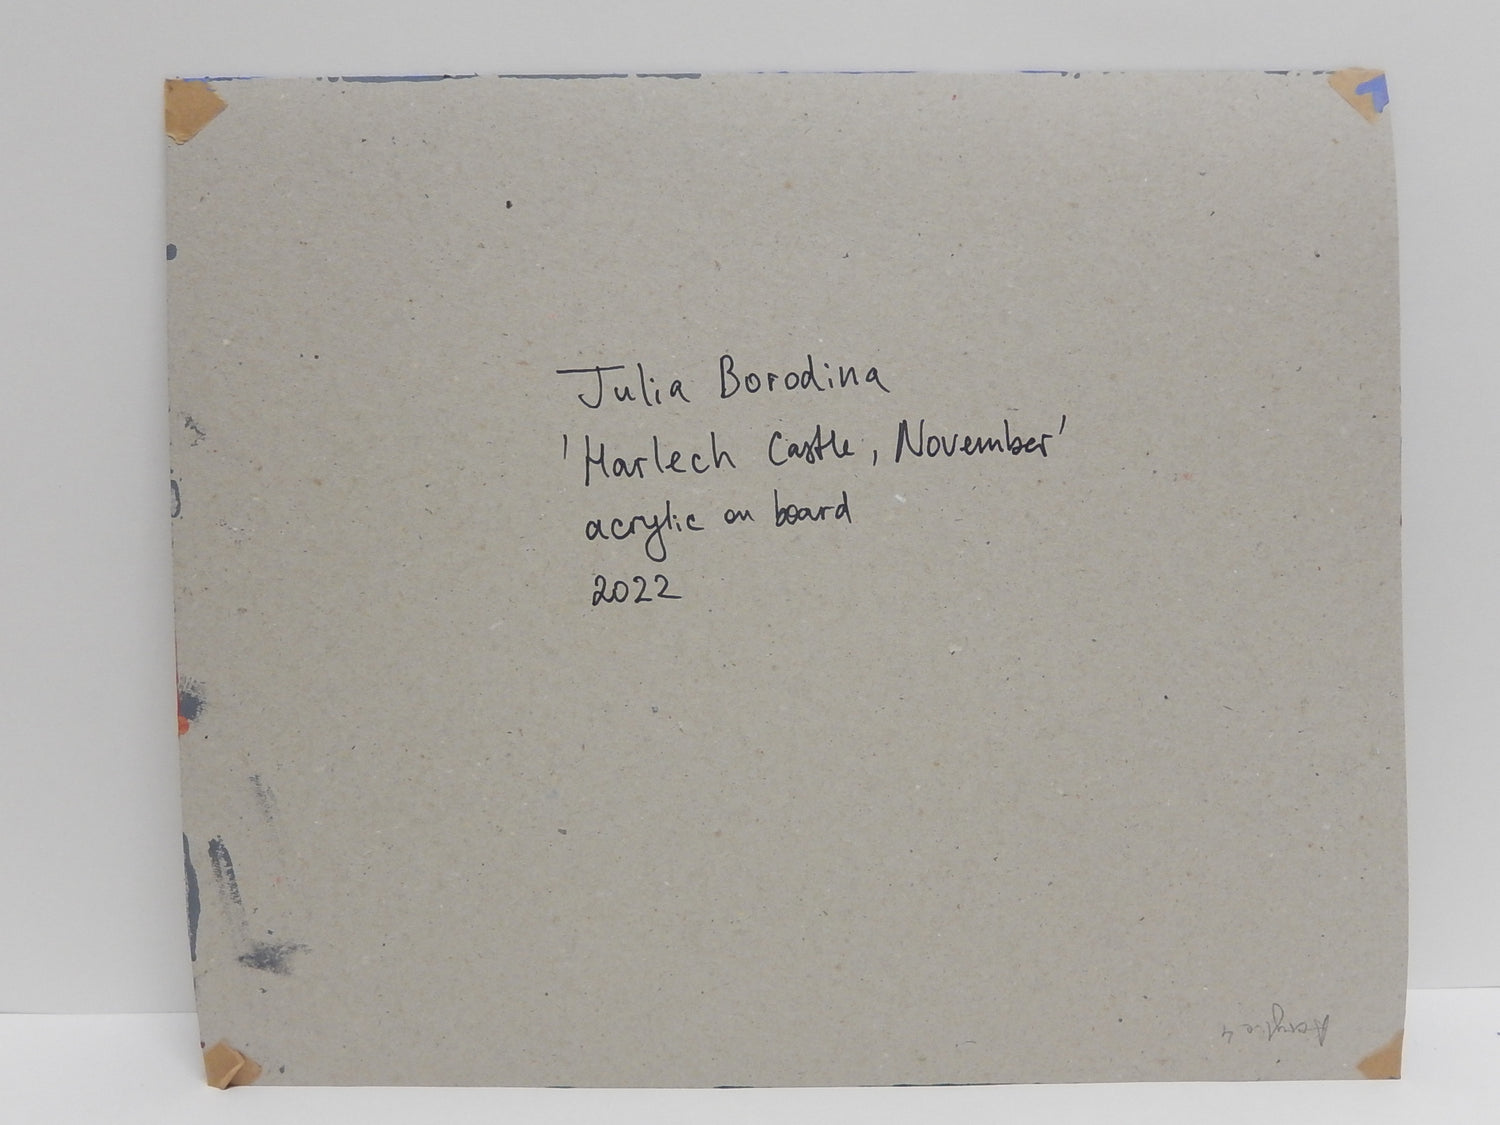 Julia Borodina
'Harlech Castle, November'
acrylic on board
2022
Acrylic 4